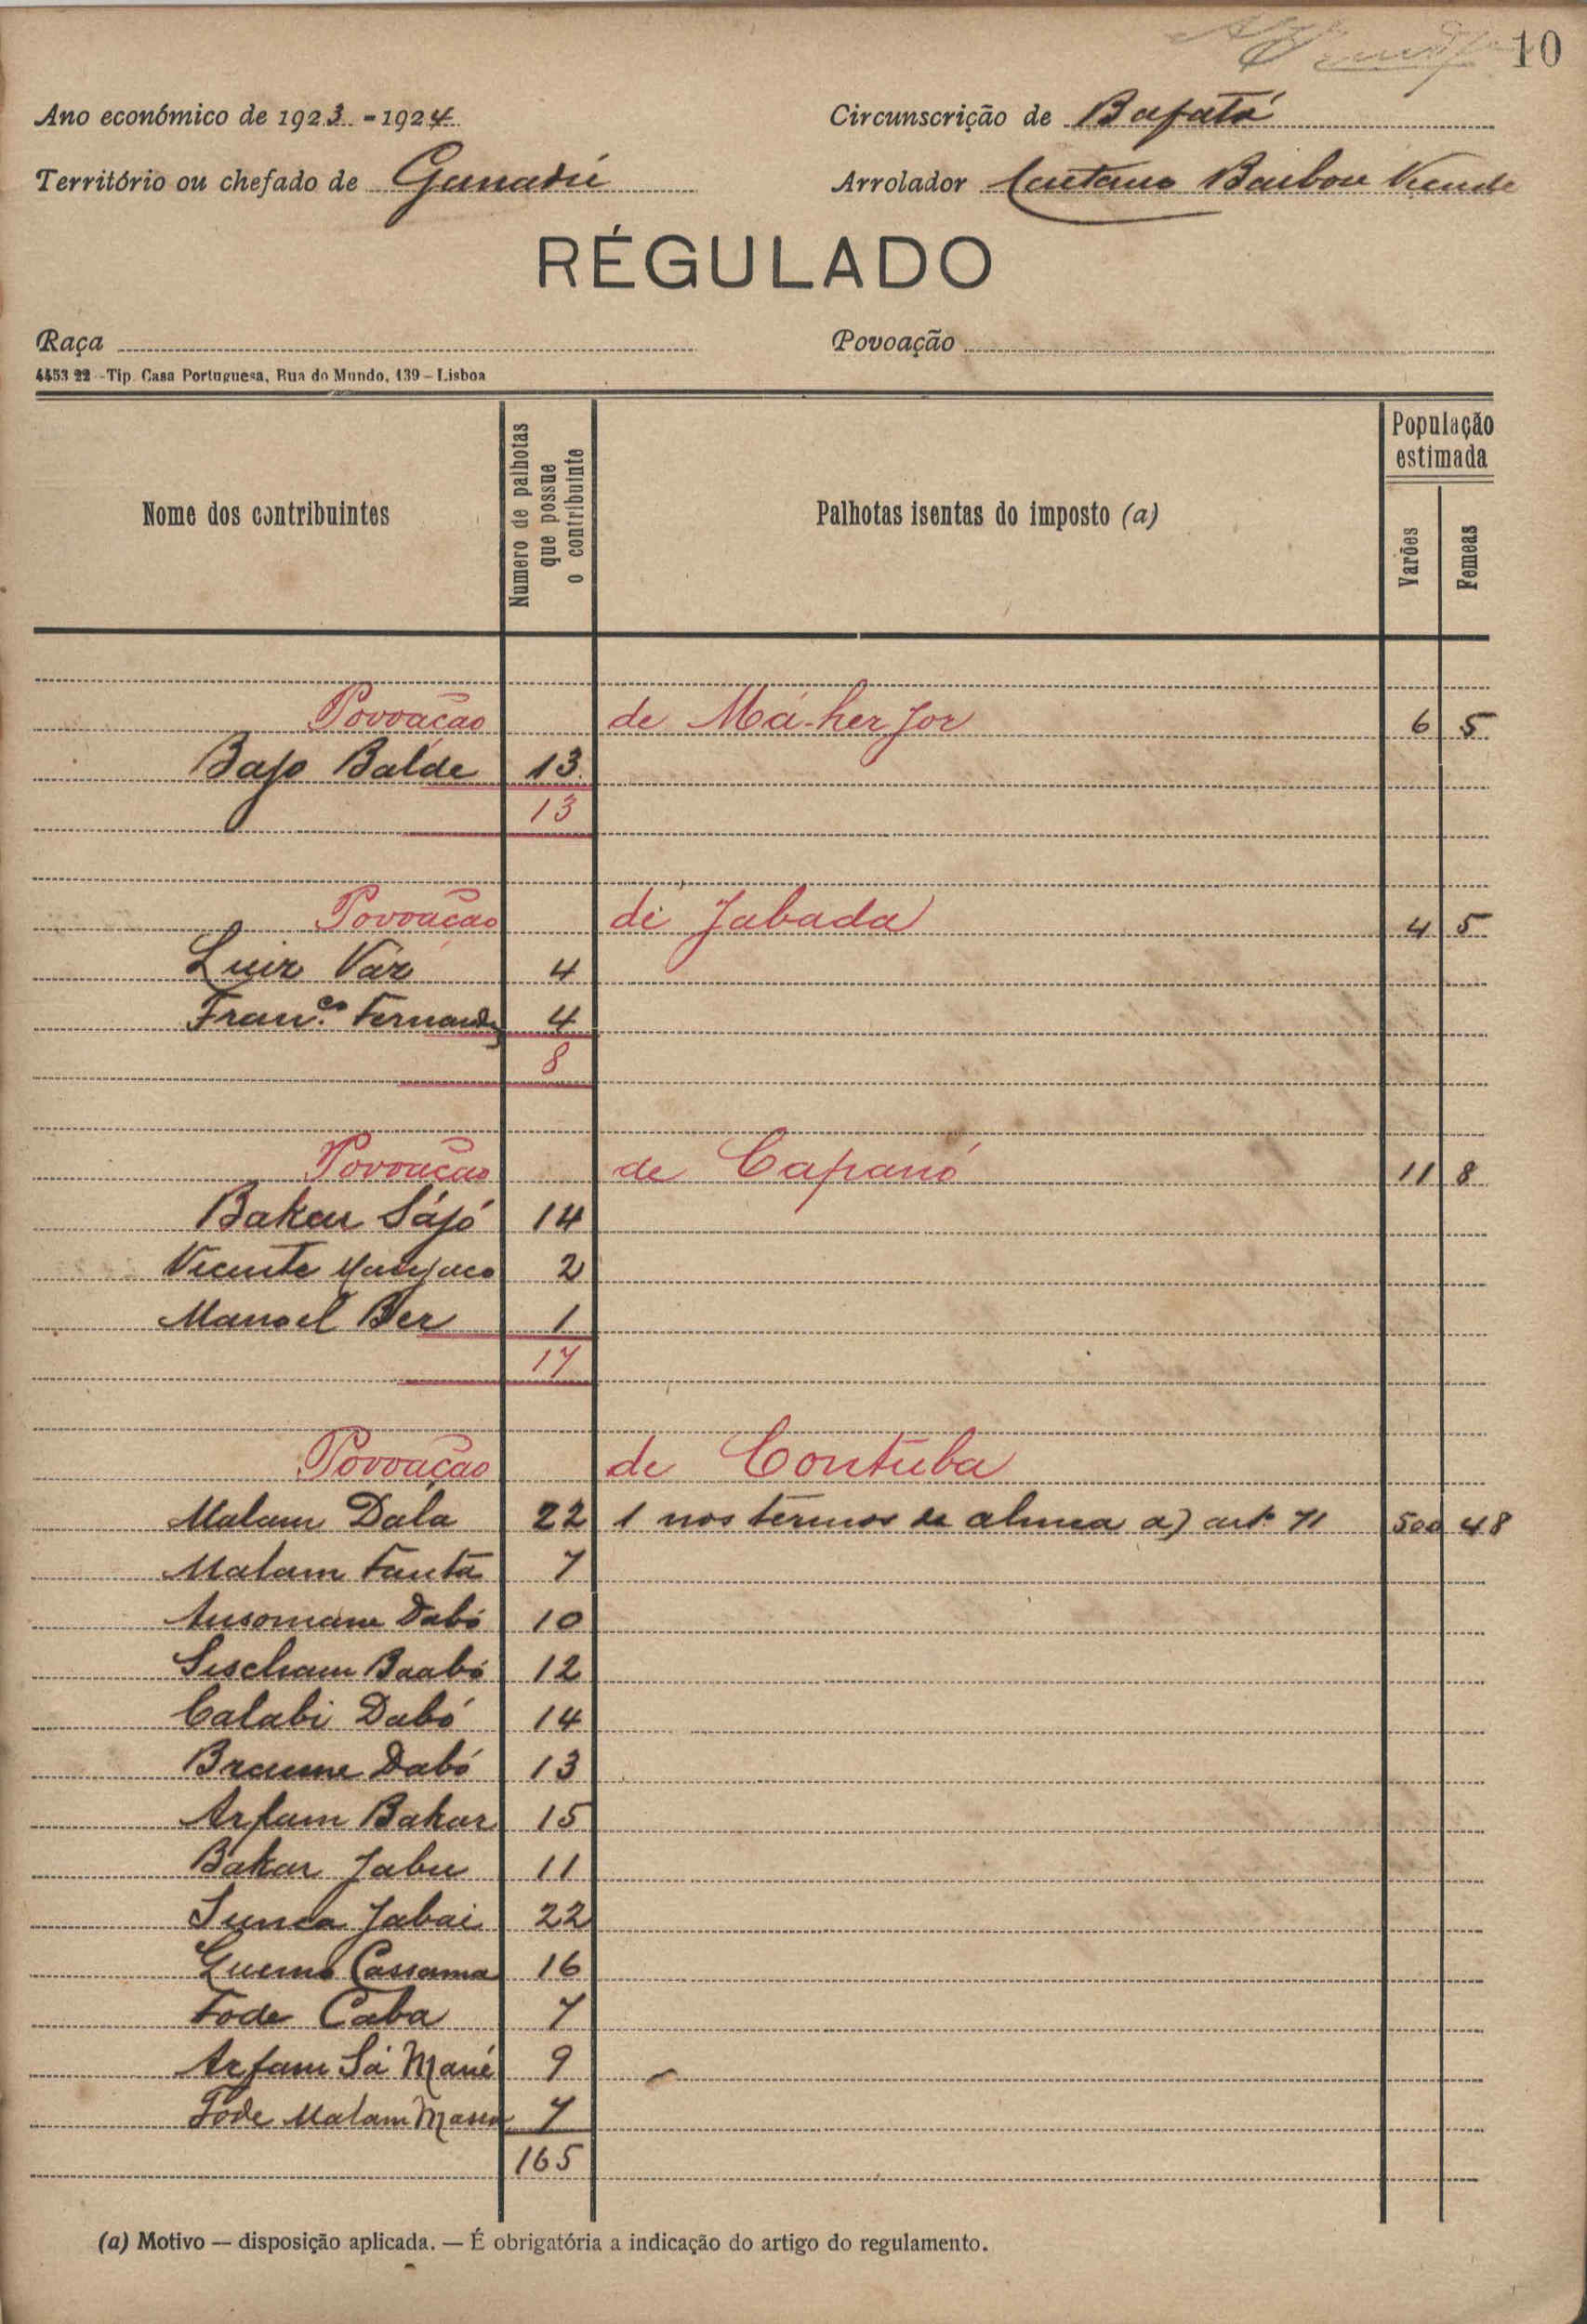 10
Ano económico de 1923 - 1924
Circunscrição de Bafatá
Território ou chefado de Ganadú
Arrolador Caetano Barbosa
RÉGULADO
Raça
Povoação
4453 22 - Tip. Casa Portuguesa, Rua do Mundo, 139 - Lisboa
Nome dos contribuintes
Numero de palhotas que possue o contribuinte
Palhotas isentas do imposto (a)
População estimada
Varões
Femeas
Povoação de Má-her Jor 6 5
Bajo Balde 13
13
Povoação de Jabada 4 5
Luiz Vaz 4
Franco. Fernandes 4
8
Povoação de Capanó 11 8
Bakar Sájó 14
Vicente Manjaco 2
Manoel Ber 1
17
Povoação de Contuba
Malam Dala 22 1 nos termos da alinea a) arto. 71 500 48
Malam Fanta 7
Ansomane Dabó 10
Baabó 12
Calabi Dabó 14
Braume Dabó 13
Arfam Bakar 15
Bakar Jabu 11
Sunca Jabai 22
Quemo Cassama 16
Fode Caba 7
Arfam Sá Mané 9
Fode Malam 7
165
(a) Motivo — disposição aplicada. — É obrigatória a indicação do artigo do regulamento.